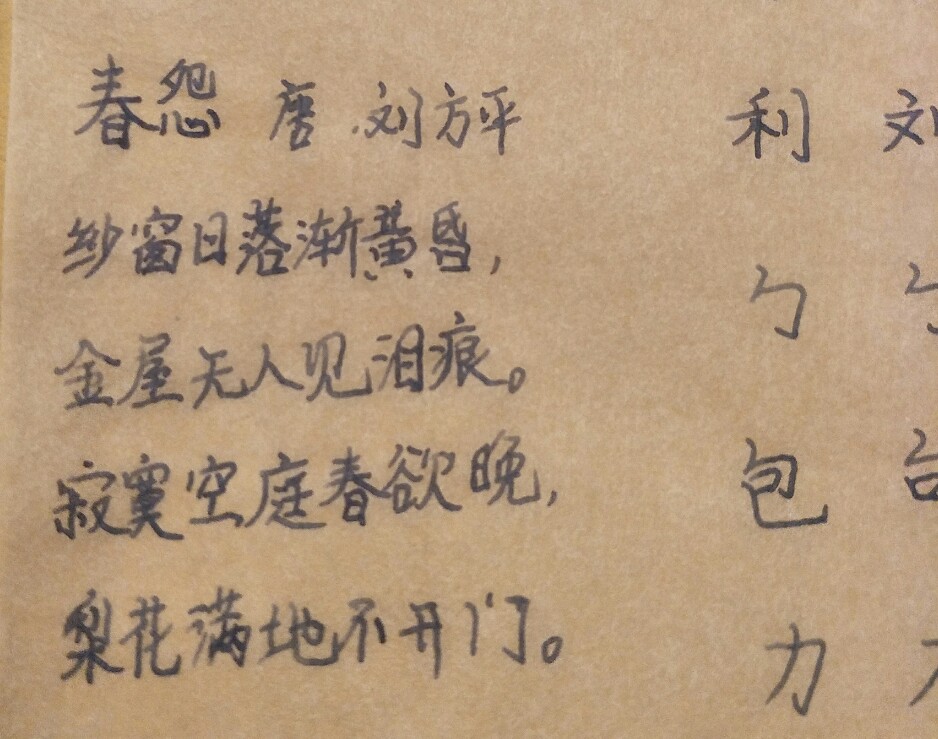 春怨 唐 刘方平
纱窗日落渐黄昏，
金屋无人见泪痕。
寂寞空庭春欲晚，
梨花满地不开门。
利 刘
勹
包
力